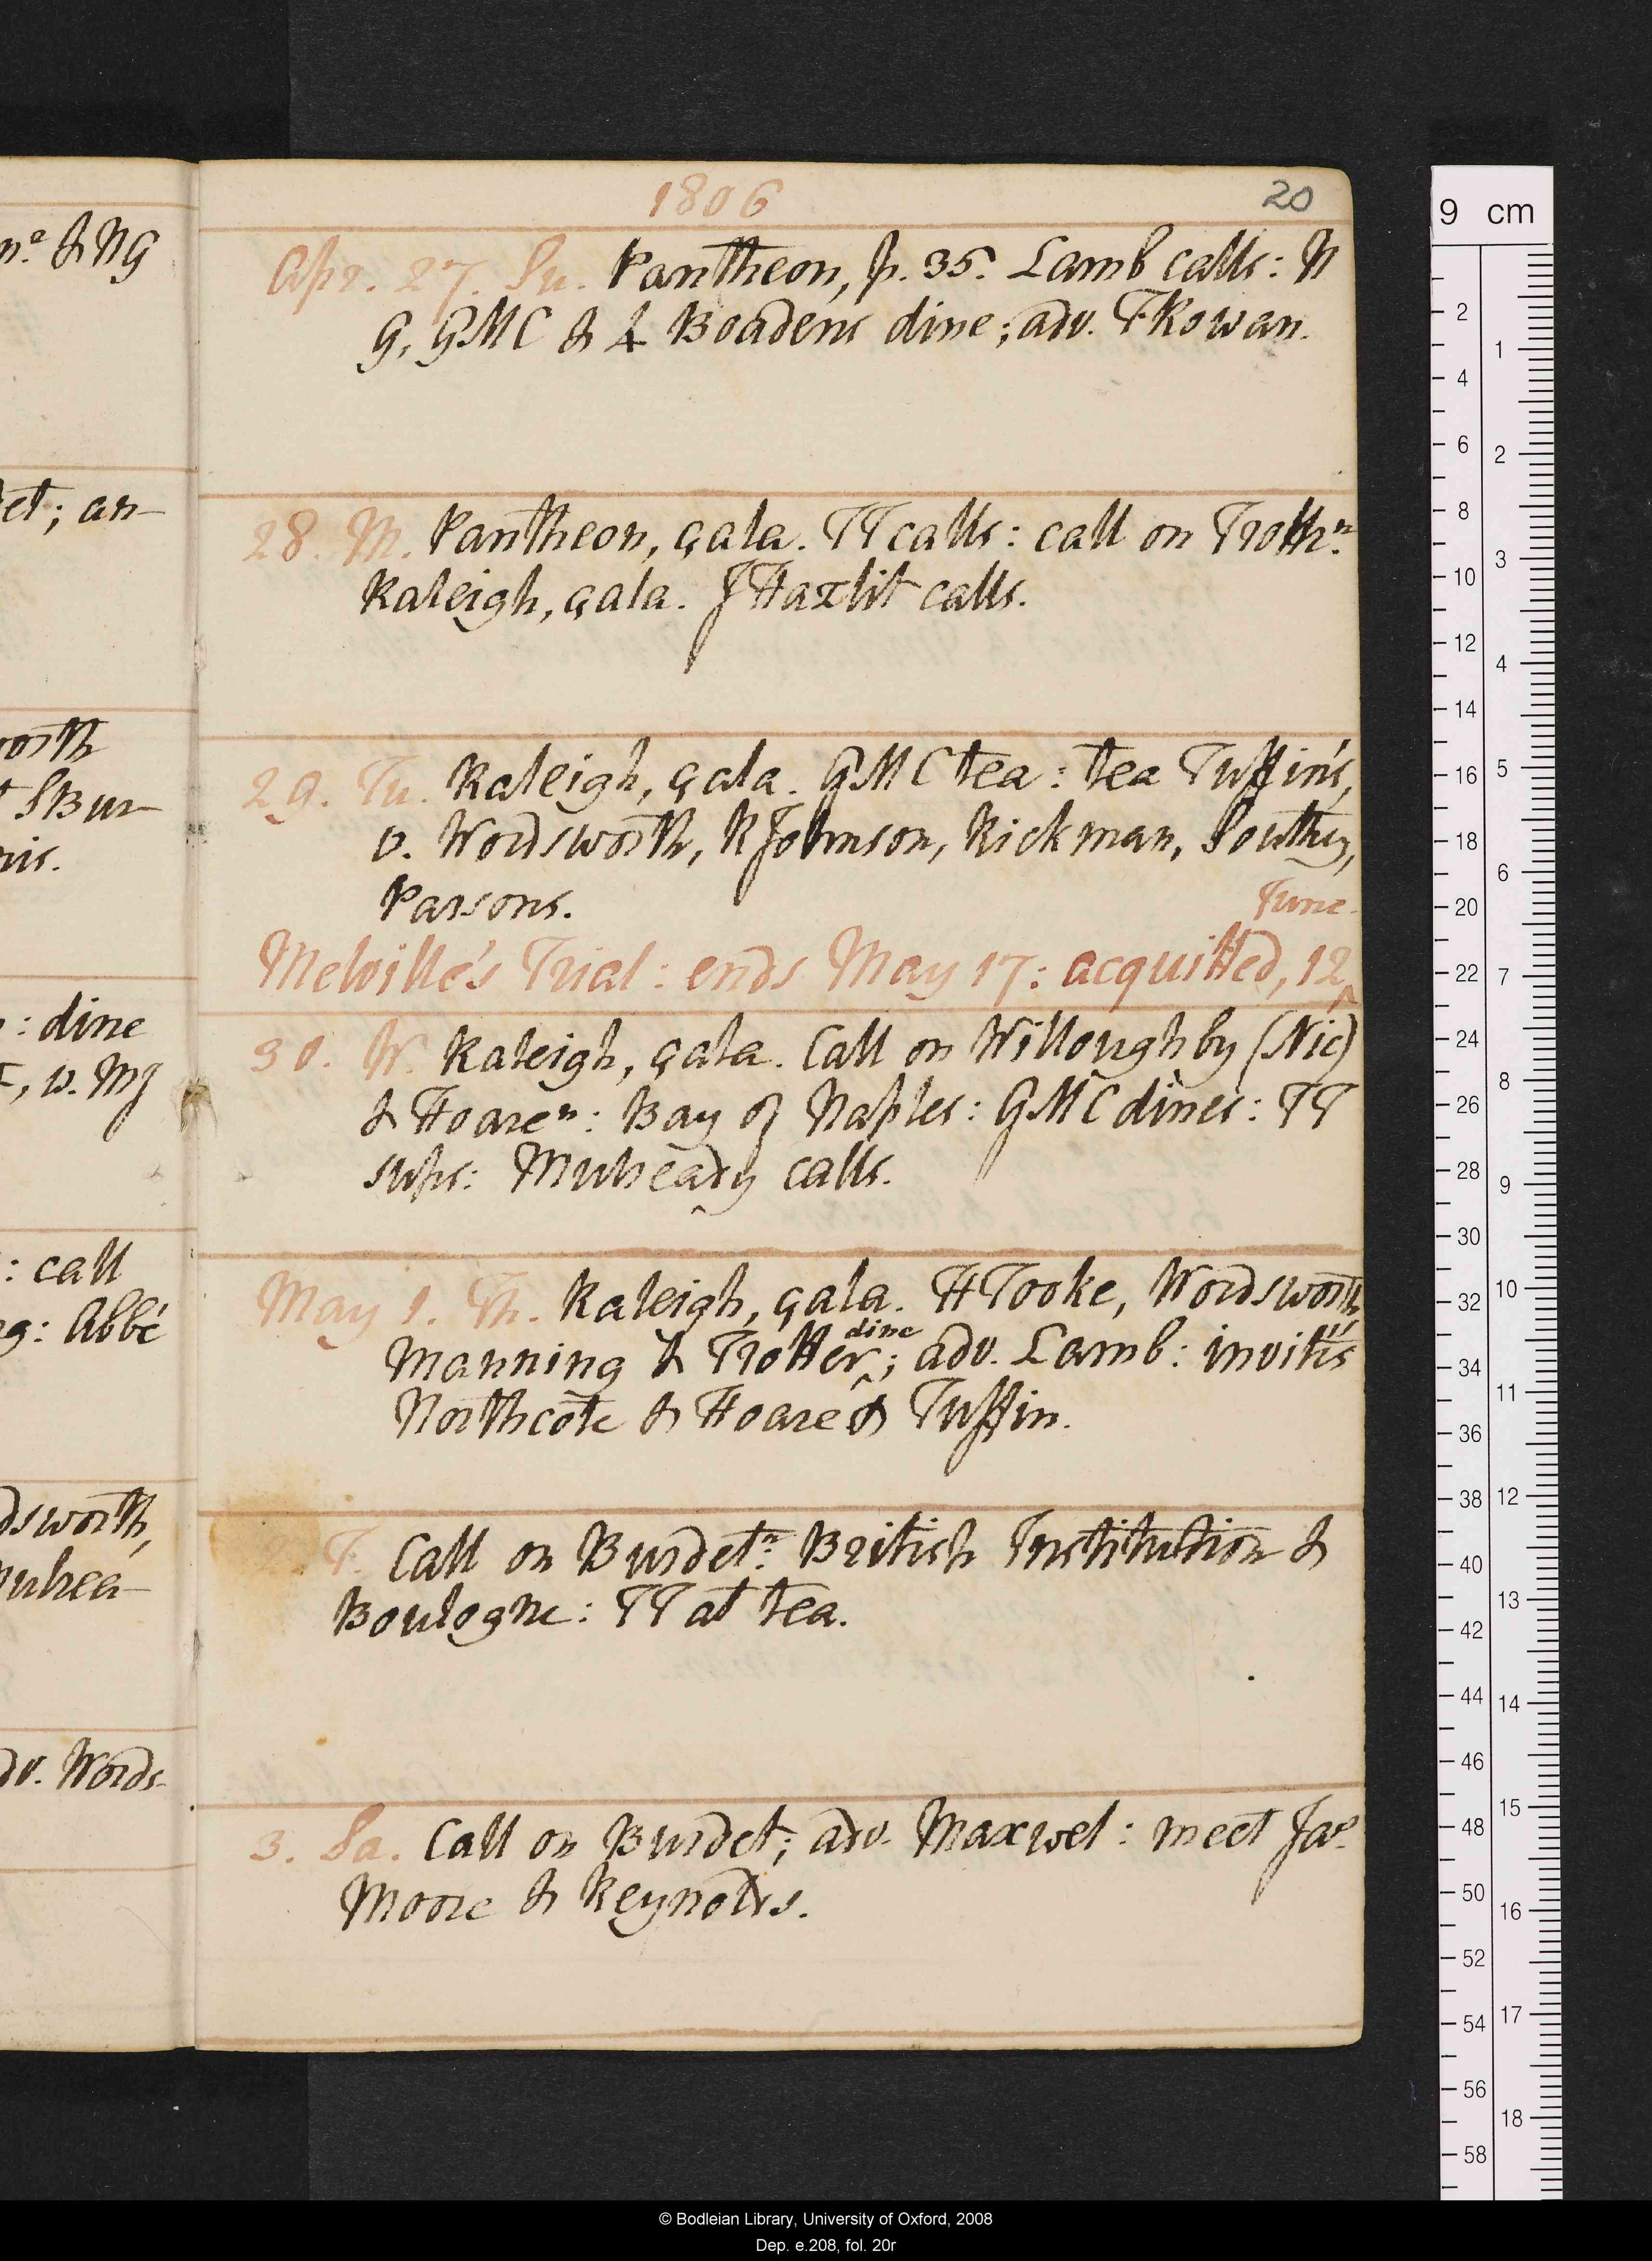 1806
20
Apr. 27. Su. Pantheon, p. 35. Lamb calls: N
G, GMC & 4 Boadens dine; adv. F Rowan.
28. M. Pantheon, çala. TT calls: call on Trottrⁿ.
Raleigh, çala. J Hazlit calls.
29. Tu. Raleigh, çala. GMC tea: tea Tuffin's,
v. Wordsworth, R Johnson, Rickman, Southey,
Parsons.
June
Melville's Trial: ends May 17: acquitted, 12^
30. W. Raleigh, çala. Call on Willoughby (Nic)
& Hoareⁿ: Bay of Naples: GMC dines: TT
sups: Mulready calls.
May 1. Th. Raleigh, çala. H Tooke, Wordsworth,
dine
Manning & Trotter^; adv. Lamb: invités
Northcote & Hoare & Tuffin.
F. Call on Burdetⁿ. British Institution &
Boulogne: TT at tea.
3. Sa. Call on Burdet; adv. Maxwel: meet Jas
Moore & Reynolds.
nᵒ. & NG
et; an-
orth
SBur-
ris.
: dine
, v. MJ
: call
g: Abbé
dsworth,
ulrea-
dv. Words-
9 cm
2
4
6
8
10
12
14
16
18
20
22
24
26
28
30
32
34
36
38
40
42
44
46
48
50
52
54
56
58
1
2
3
4
5
6
7
8
9
10
11
12
13
14
15
16
17
18
© Bodleian Library, University of Oxford, 2008
Dep. e.208, fol. 20r